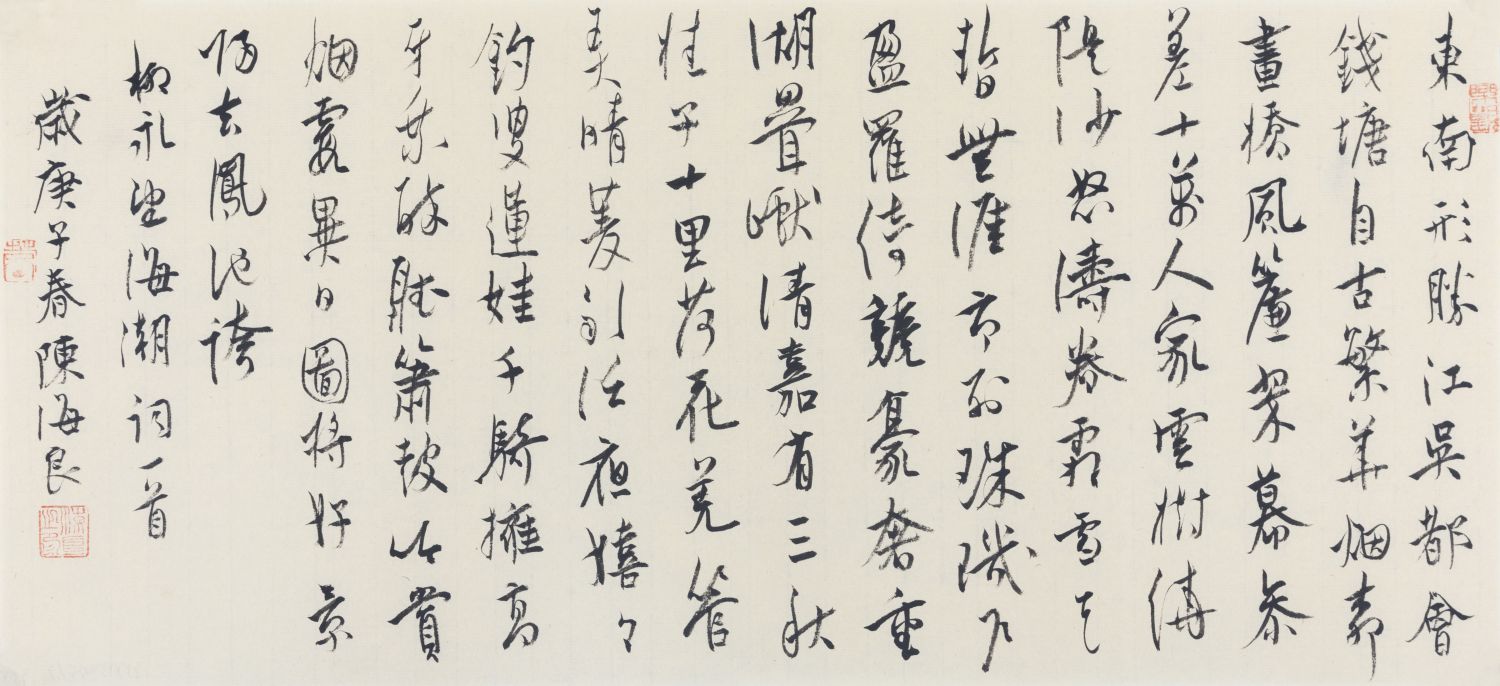 東南形勝江吳都會
錢塘自古繁華烟柳
畫橋風簾翠幕參
差十萬人家雲樹繞
隄沙怒濤卷霜雪天
塹無涯市列珠璣戶
盈羅綺競豪奢重
湖疊巘清嘉有三秋
桂子十里荷花羌管
弄晴菱歌泛夜嬉々
釣叟蓮娃千騎擁高
牙乘醉聽簫鼓吟賞
烟霞異日圖將好景
歸去鳳池誇
柳永望海潮詞一首
歲庚子春陳海良